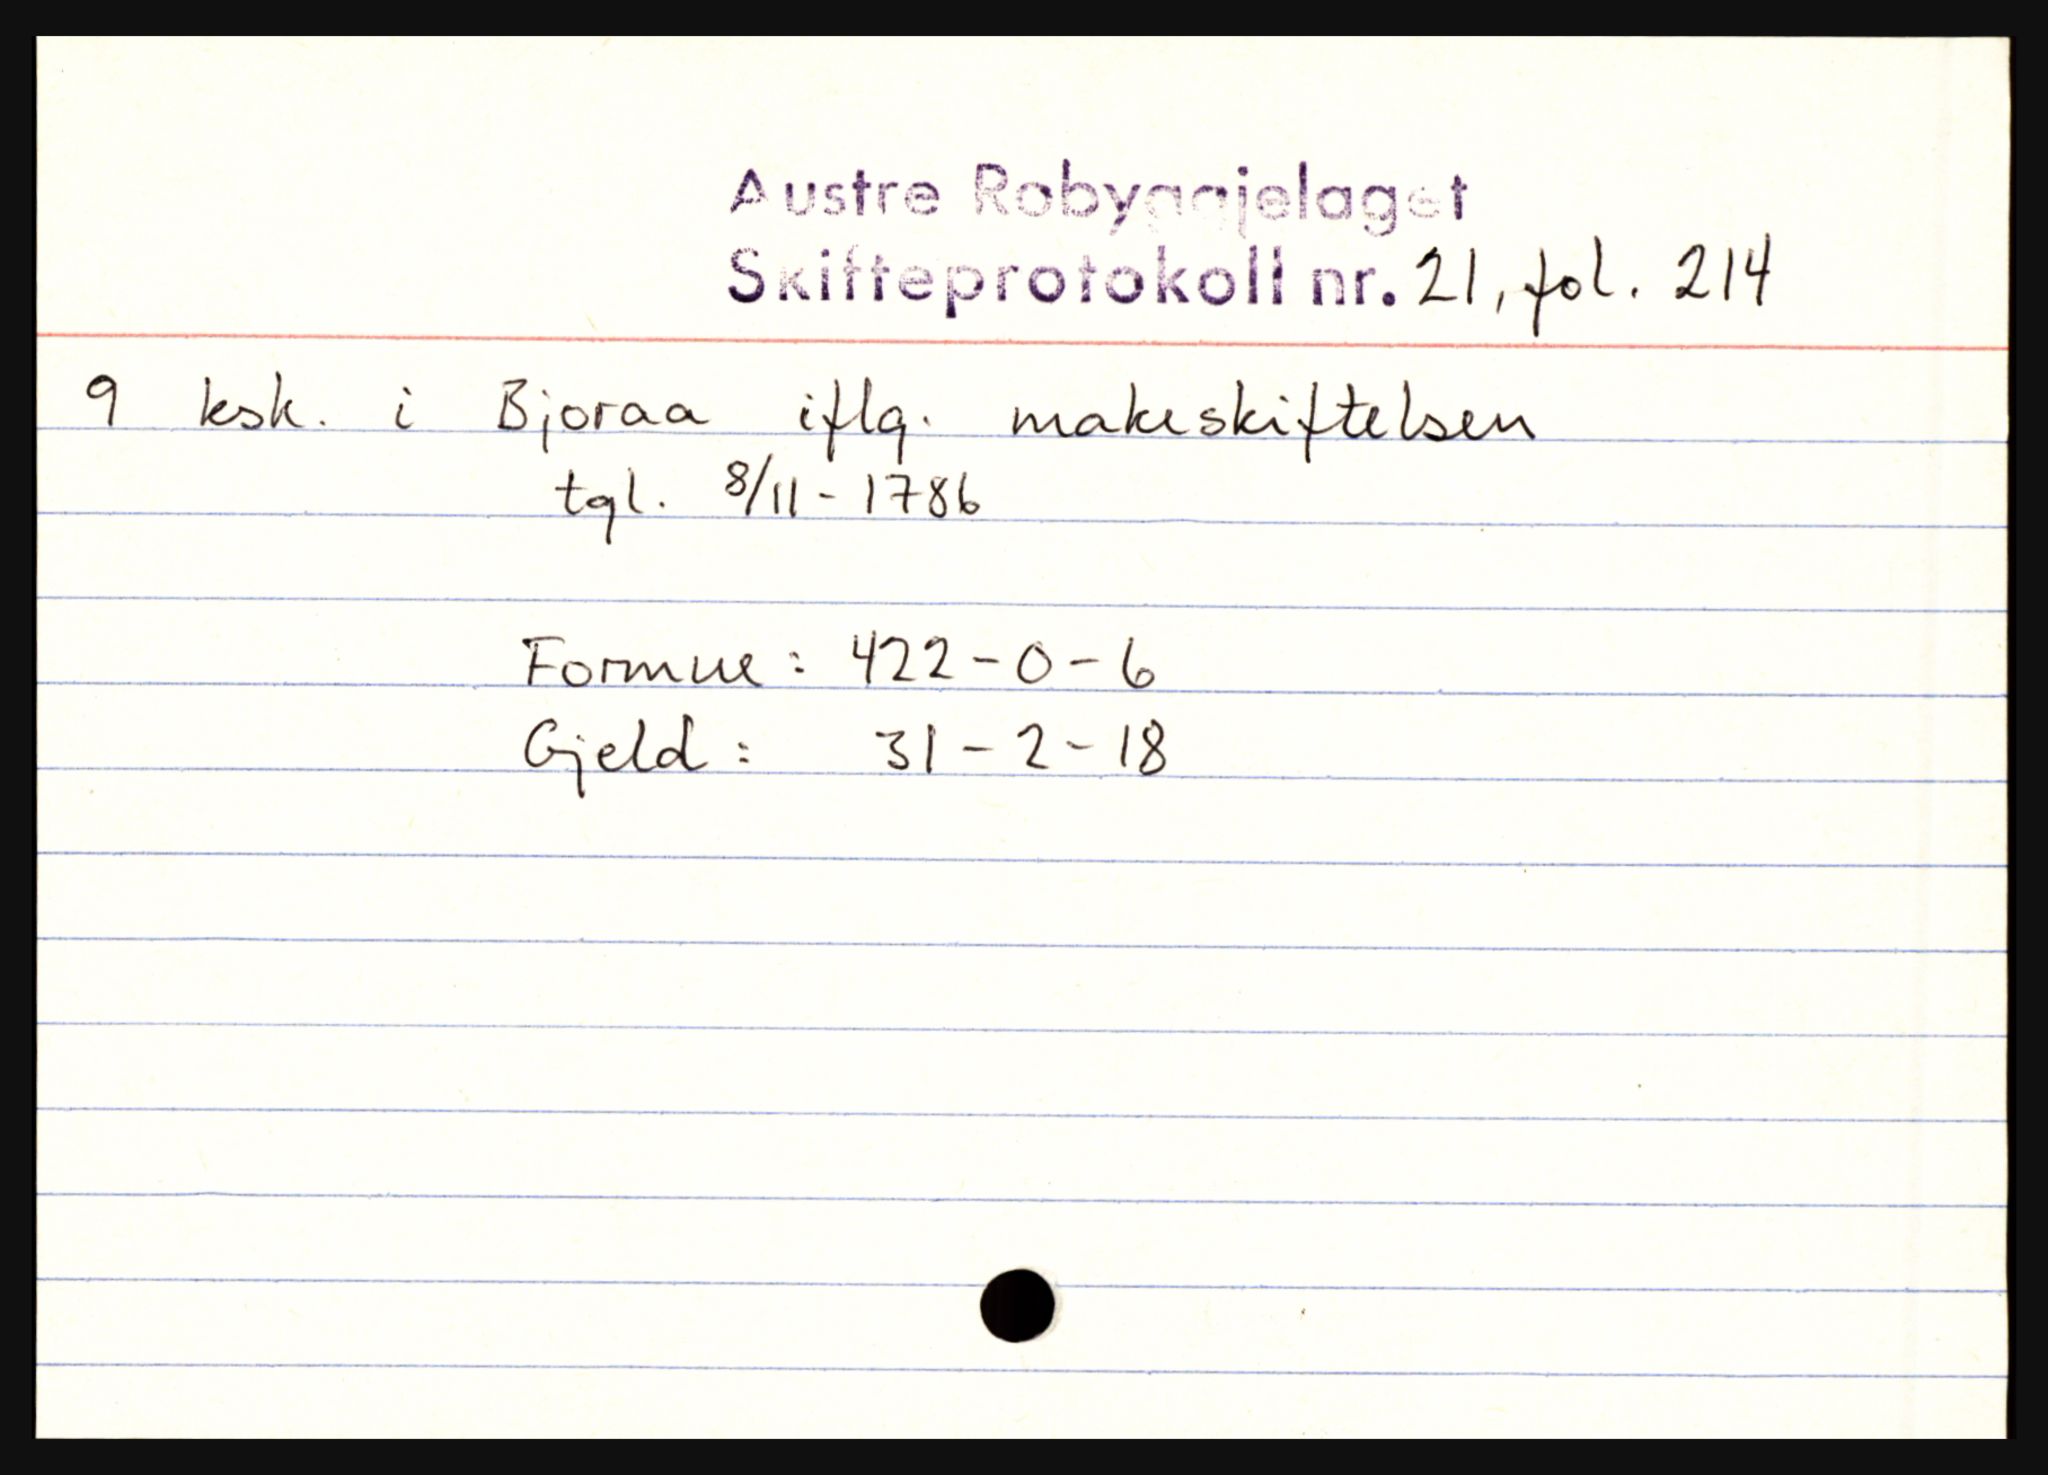 Austre Robyggjelaget
Skifteprotokoll nr. 21, fol. 214
9 ksk. i Bjoraa iflg. makeskiftelsen
tgl. 8/11 - 1786
Formue : 422 - 0 - 6
Gjeld : 31 - 2 - 18